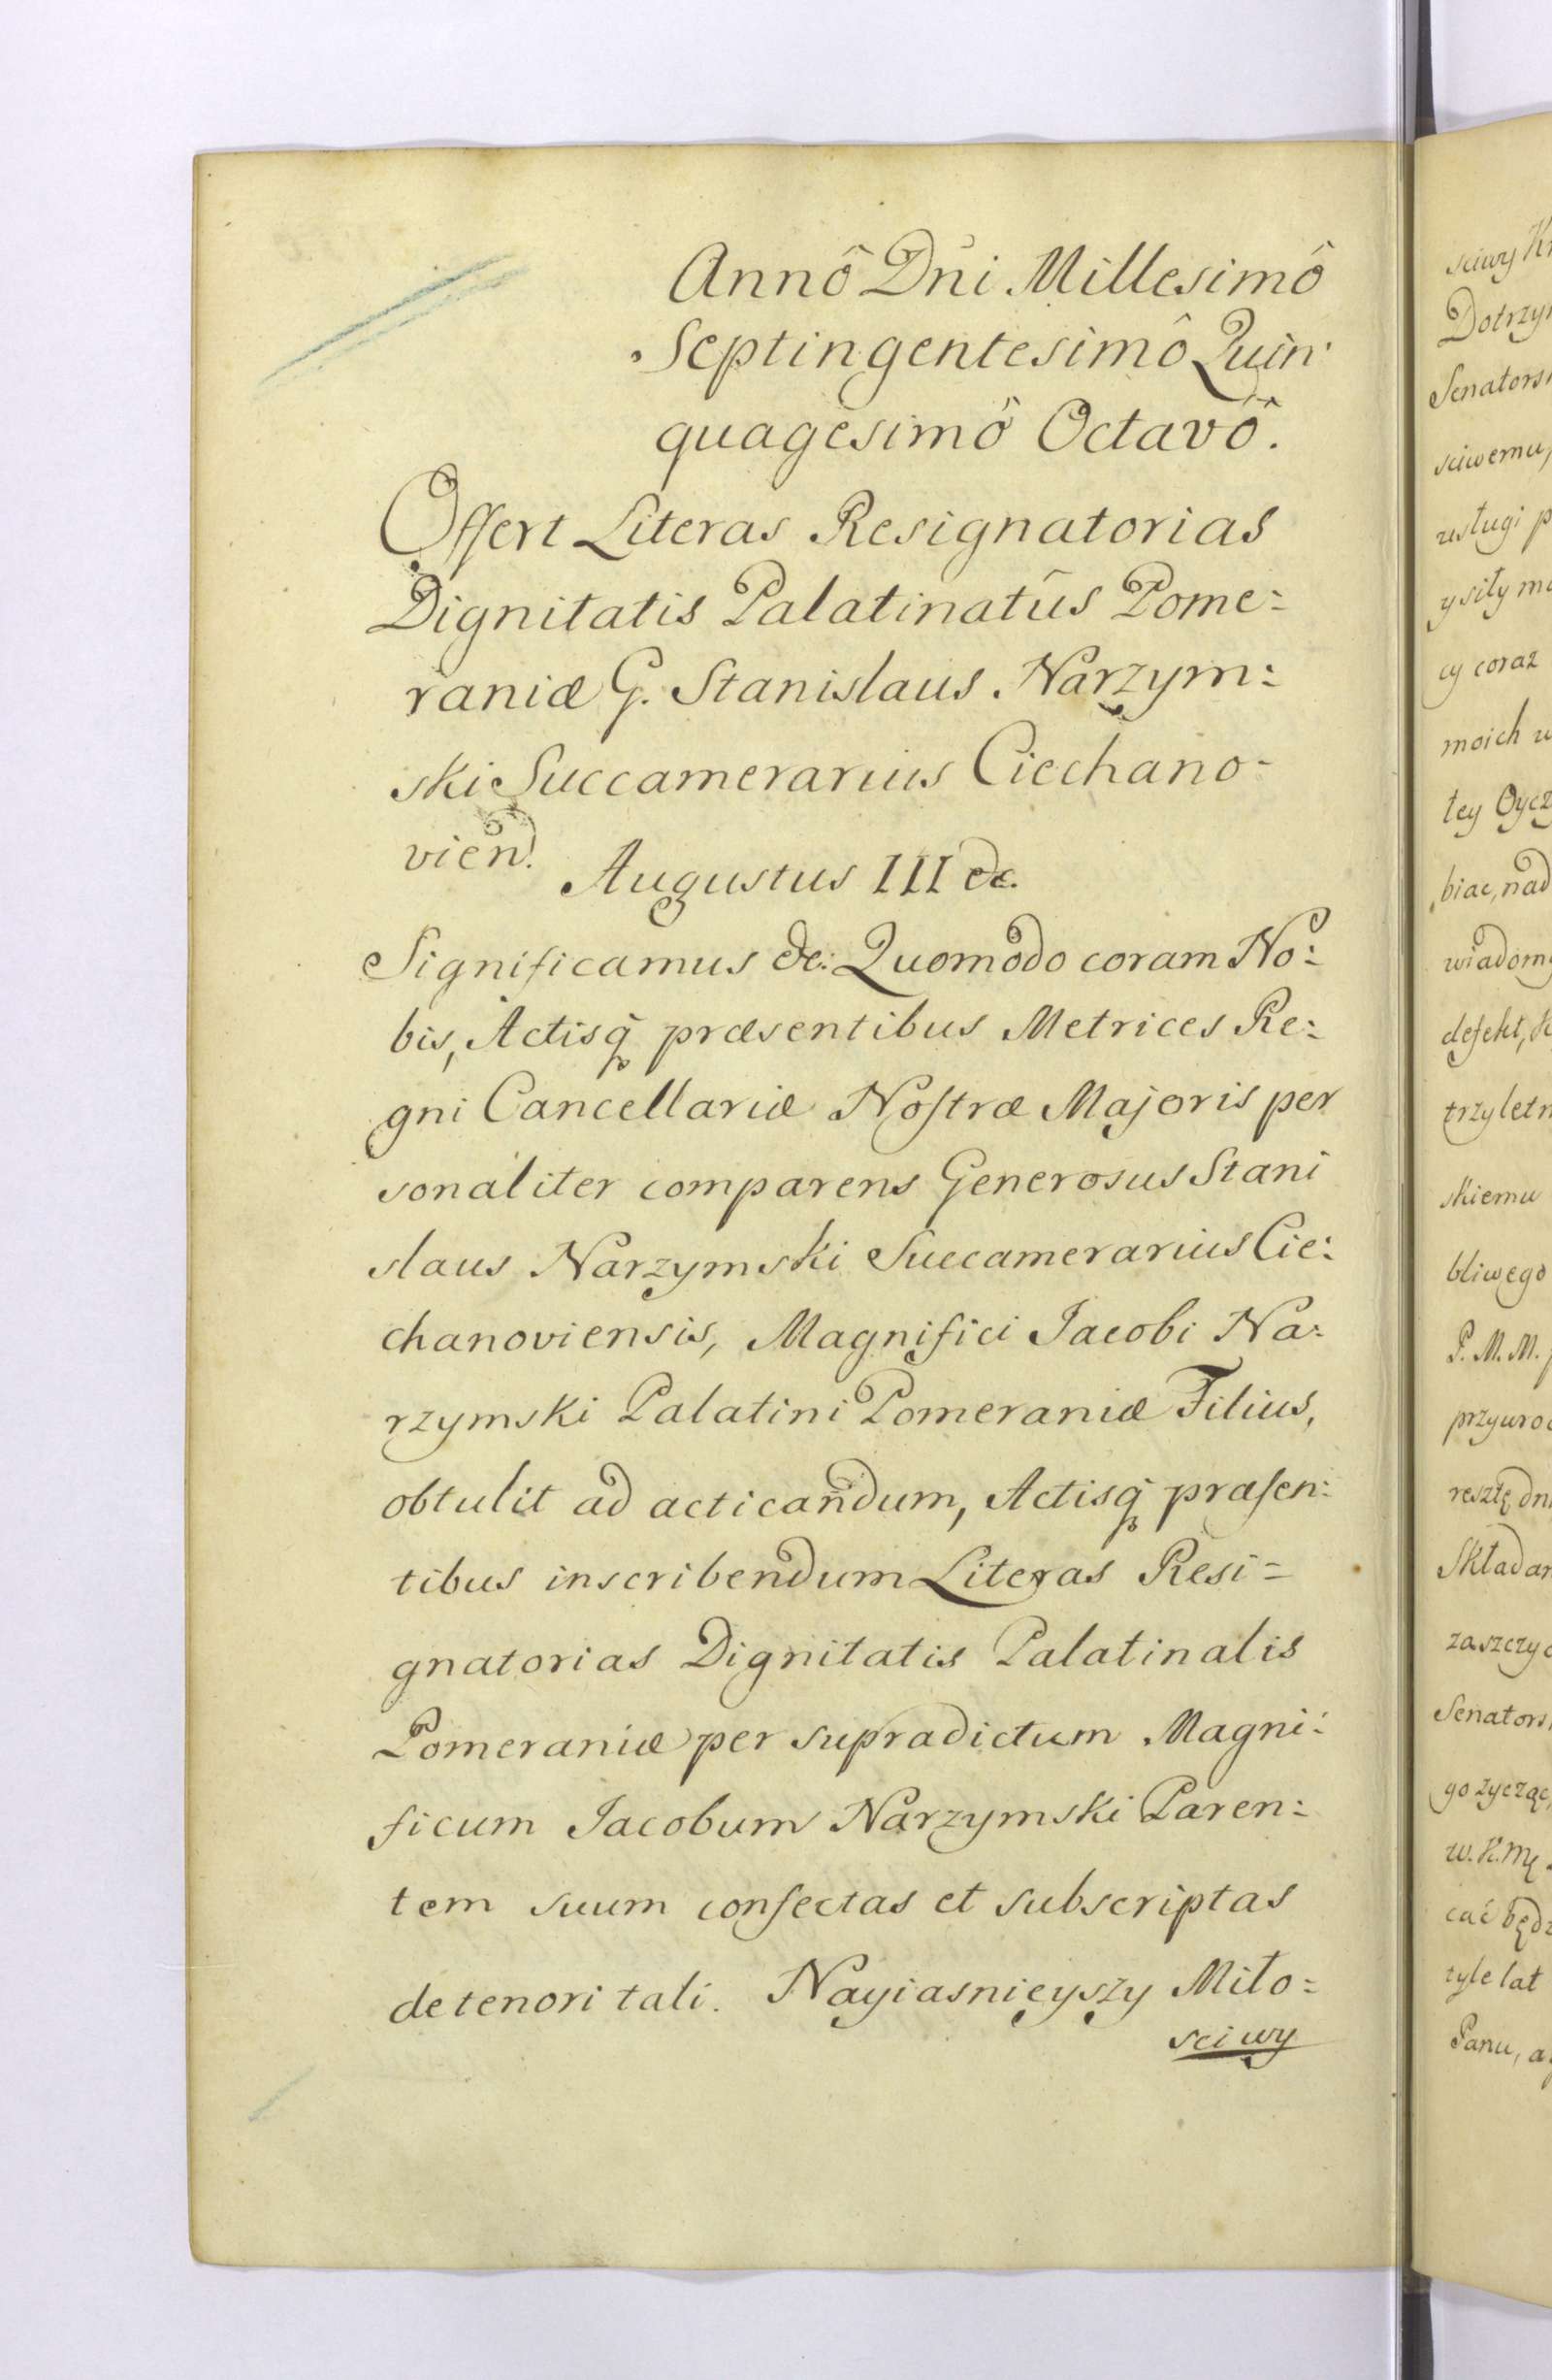 Annô Dñi Millesimô
Septingentesimô Quin
quagesimô Octavô.
Offert Literas Resignatorias
Dignitatis Palatinatûs Pome:
raniæ G. Stanislaus Narzym:
ski Succamerarius Ciechano-
vien.
Augustus III &c.
Significamus &c: Quomodo coram No:
bis, Actisq̃ præsentibus Metrices Re:
gni Cancellariæ Nostræ Majoris per
sonaliter comparens Generosus Stani
slaus Narzymski Succamerarius Cie:
chanoviensis, Magnifici Jacobi Na:
rzymski Palatini Pomeraniæ Filius,
obtulit ad acticandum, Actisq̃ præsen:
tibus inscribendum Literas Resi=
gnatorias Dignitatis Palatinalis
Pomeraniæ per supradictum Magni:
ficum Jacobum Narzymski Paren:
tem suum confectas et subscriptas
de tenori tali. Nayiasnieyszy Miło=
sciwy
sciwy
Senators
sciwemu,
y siły
cy coraz
moich
tey
biac, nad
defekt,
skiemu
bliwego
P. M. M.
resztę
Senators
go zycząc,
w. K. Mę
cać
tyle lat
Panu,